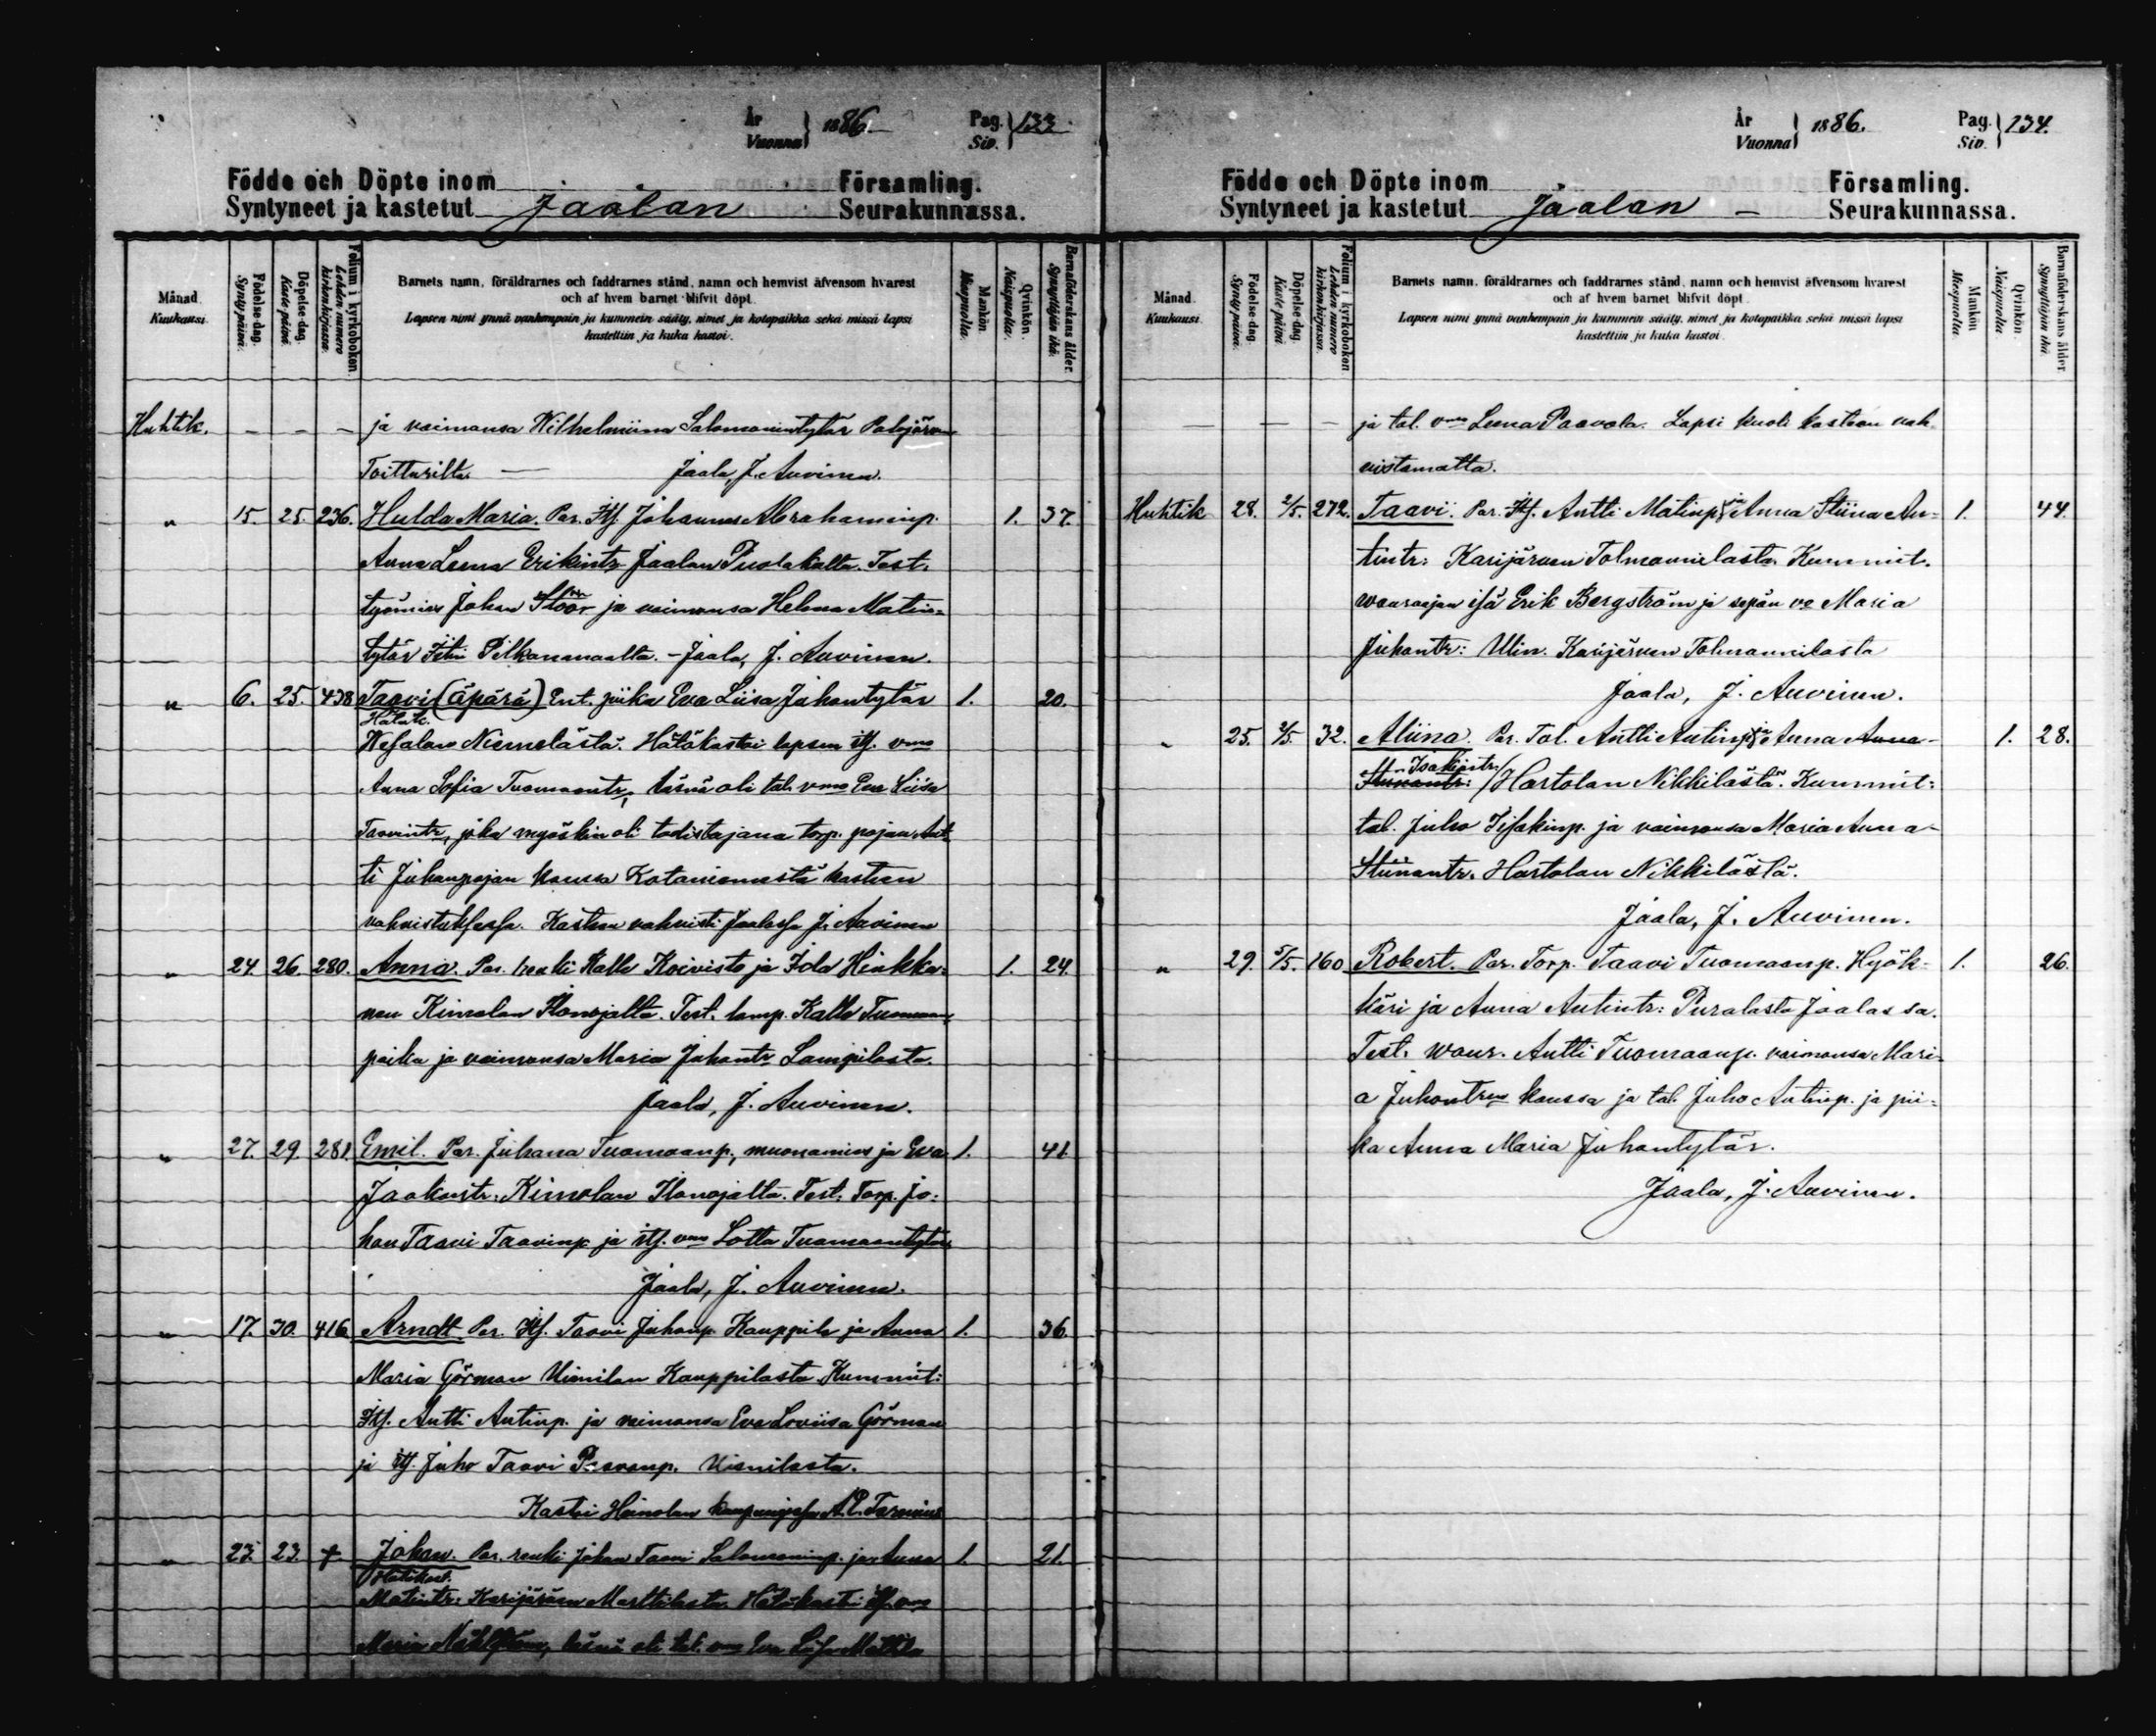 År
Vuonna } 1886. Pag.
Siv. } 133.
Födde och Döpte inom Församling.
Syntyneet ja kastetut Jaalan Seurakunnassa.
Månad.
Kuukausi.
Födelse dag.
Synty päivä.
Döpelse dag.
Kaste päivä.
Folium i kyrkoboken.
Lehden numero kirkonkirjassa.
Barnets namn, föräldrarnes och faddrarnes stånd, namn och hemvist äfvensom hvarest
och af hvem barnet blifvit döpt.
Lapsen nimi ynnä vanhempain ja kummein sääty, nimet ja kotopaikka sekä missä lapsi
kastettiin ja kuka kastoi.
Mankön.
Miespuolta.
Qvinkön.
Naispuolta.
Barnaföderskans ålder.
Synnyttäjän ikä.
Huhtik. — — — ja vaimonsa Wilhelmiina Salomonintytär Palojärven
Toitturilta. — Jaala, J. Auvinen.
" 15. 25. 236. Hulda Maria. Par. Itf Johannes Abrahaminp. 1. 37.
Anna Leena Erikintr Jaalan Puolakalta. Test.
työmies Johan Stoor ja vaimonsa Helena Matin-
tytär Pilkanmaalta. - Jaala, J. Auvinen.
" 6. 25. 438 Taavi (äpärä) Ent. piika Eva Liisa Juhontytär 1. 20.
Hätäk.
Niemelästä. Hätäkastoi lapsen itf. vmo
Anna Sofia Tuomaantr, läsnä oli tal. vmo Eva Liisa
Taavintr, joka myöskin oli todistajana torp. pojan Ant-
ti Juhanpojan kanssa Kotaniemestä kasteen
vahvistuksessa. Kasteen vahvisti Jaalassa J. Auvinen
" 24. 26. 280. Anna. Par. renki Kalle Koivisto ja Ida Hinkka- 1. 24.
nen Kimolan Ilonojalta. Test. lamp. Kalle Tuomaan-
poika ja vaimonsa Maria Juhontr Lampilasta.
Jaala, J. Auvinen.
" 27. 29. 281. Emil. Par. Juhana Tuomaanp., muonamies ja Eva 1. 41.
Jaakontr. Kimolan Ilonojalta. Test. Torp. Jo-
han Taavi Taavinp. ja itf. vmo Lotta Tuomaantytär
Jaala, J. Auvinen.
" 17. 30. 416 Arndt. Par. Itf. Taavi Juhanp. Kauppila ja Anna 1. 36.
Maria Görman Uimilan Kauppilasta. Kummit:
Itf. Antti Antinp. ja vaimonsa Eva Loviisa Görman
ja itf. Juho Taavi Paavonp. Uimilasta.
Kastoi Heinolan kaupungissa
" 23. 23. + Johan. Par. renki Johan Taavi Salomoninp. ja Anna 1. 21.
Hätäkast.
Matintr: Karijärven Marttilasta. Hätäkastoi itf. vmo
Maria läsnä oli tal. vmo Eva Liisa Mattila
År
Vuonna } 1886. Pag.
Siv. } 134.
Födde och Döpte inom Församling.
Syntyneet ja kastetut Jaalan — Seurakunnassa.
Månad.
Kuukausi.
Födelse dag.
Synty päivä.
Döpelse dag.
Kaste päivä.
Folium i kyrkoboken.
Lehden numero kirkonkirjassa.
Barnets namn, föräldrarnes och faddrarnes stånd, namn och hemvist äfvensom hvarest
och af hvem barnet blifvit döpt.
Lapsen nimi ynnä vanhempain ja kummein sääty, nimet ja kotopaikka sekä missä lapsi
kastettiin ja kuka kastoi.
Mankön.
Miespuolta.
Qvinkön.
Naispuolta.
Barnaföderskans ålder.
Synnyttäjän ikä.
— — — ja tal. vmo Leena Paavola. Lapsi kuoli kasteen vah-
vistamatta.
Huhtik 28. 2/5. 272. Taavi. Par. Itf. Antti Matinp. ja Anna Stiina An- 1. 44.
tintr: Karijärven Tolmannilasta. Kummit.
vaaraajan isä Erik Bergström ja sepän vo Maria
Juhontr: Ulin. Karijärven Tolmannilasta
Jaala, J. Auvinen.
" 25. 2/5. 32. Aliina. Par. Tal. Antti Antinp. ja Anna Anna- 1. 28.
Isakintr.
Stiinantr: / Hartolan Nikkilästä. Kummit:
tal. Juho Isakinp. ja vaimonsa Maria Anna-
Stiinantr. Hartolan Nikkilästä.
Jaala, J. Auvinen.
" 29. 5/5. 160 Robert. Par. Torp. Taavi Tuomaanp. Hyök- 1. 26.
käri ja Anna Antintr: Puralasta Jaalassa.
Test. waur. Antti Tuomaanp. vaimonsa Mari-
a Juhontren kanssa ja tal. Juho Antinp. ja pii-
ka Anna Maria Juhontytär.
Jaala, J. Auvinen.